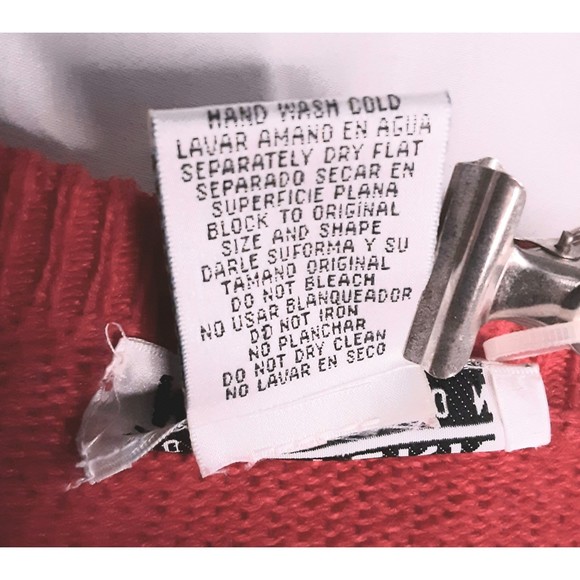 HAND WASH COLD
LAVAR AMANO EN AGUA
SEPARATELY DRY FLAT
SEPARADO SECAR EN
SUPERFICIE PLANA
BLOCK TO ORIGINAL
SIZE AND SHAPE
DARLE SUFORMA Y SU
TAMANO ORIGINAL
DO NOT BLEACH
NO USAR BLANQUEADOR
DO NOT IRON
NO PLANCHAR
DO NOT DRY CLEAN
NO LAVAR EN SECO